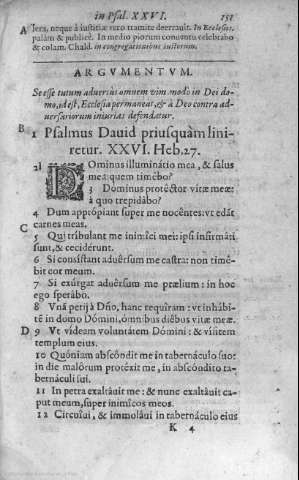 in Psal. XXVI. 151
A lera, neque à iustitiæ vero tramite deerrauit. In Ecclesiis.
palàm & publicè. In medio piorum conuentu celebrabo
& colam. Chald. in congregationibus iustorum.
ARGVMENTVM.
Se esse tutum aduersus omnem vim modo in Dei do-
mo, id est, Ecclesia permaneat, & à Deo contra ad-
uersariorum iniurias defendatur.
B 1 Psalmus Dauid priusquàm lini-
retur. XXVI. Heb. 27.
2 DOminus illuminátio mea, & salus
mea: quem timébo?
3 Dominus protéctor vitæ meæ:
à quo trepidábo?
4 Dum apprópiant super me nocéntes: vt edāt
C carnes meas.
5 Qui tríbulant me inimíci mei: ipsi infirmáti
sunt, & cecidérunt.
6 Si consístant aduêrsum me castra: non timé-
bit cor meum.
7 Si exúrgat aduêrsum me prælium: in hoc
ego sperábo.
8 Vnā petij à Dño, hanc requiram: vt inhábi-
tē in domo Dómini, omnibus diêbus vitæ meæ.
D 9 Vt vídeam voluntátem Dómini: & vísitem
templum eius.
10 Quóniam abscôndit me in tabernáculo suo:
in die malôrum protéxit me, in abscôndito ta-
bernáculi sui.
11 In petra exaltáuit me: & nunc exaltáuit ca-
put meum, super inimícos meos.
12 Circuíui, & immoláui in tabernáculo eius
K 4